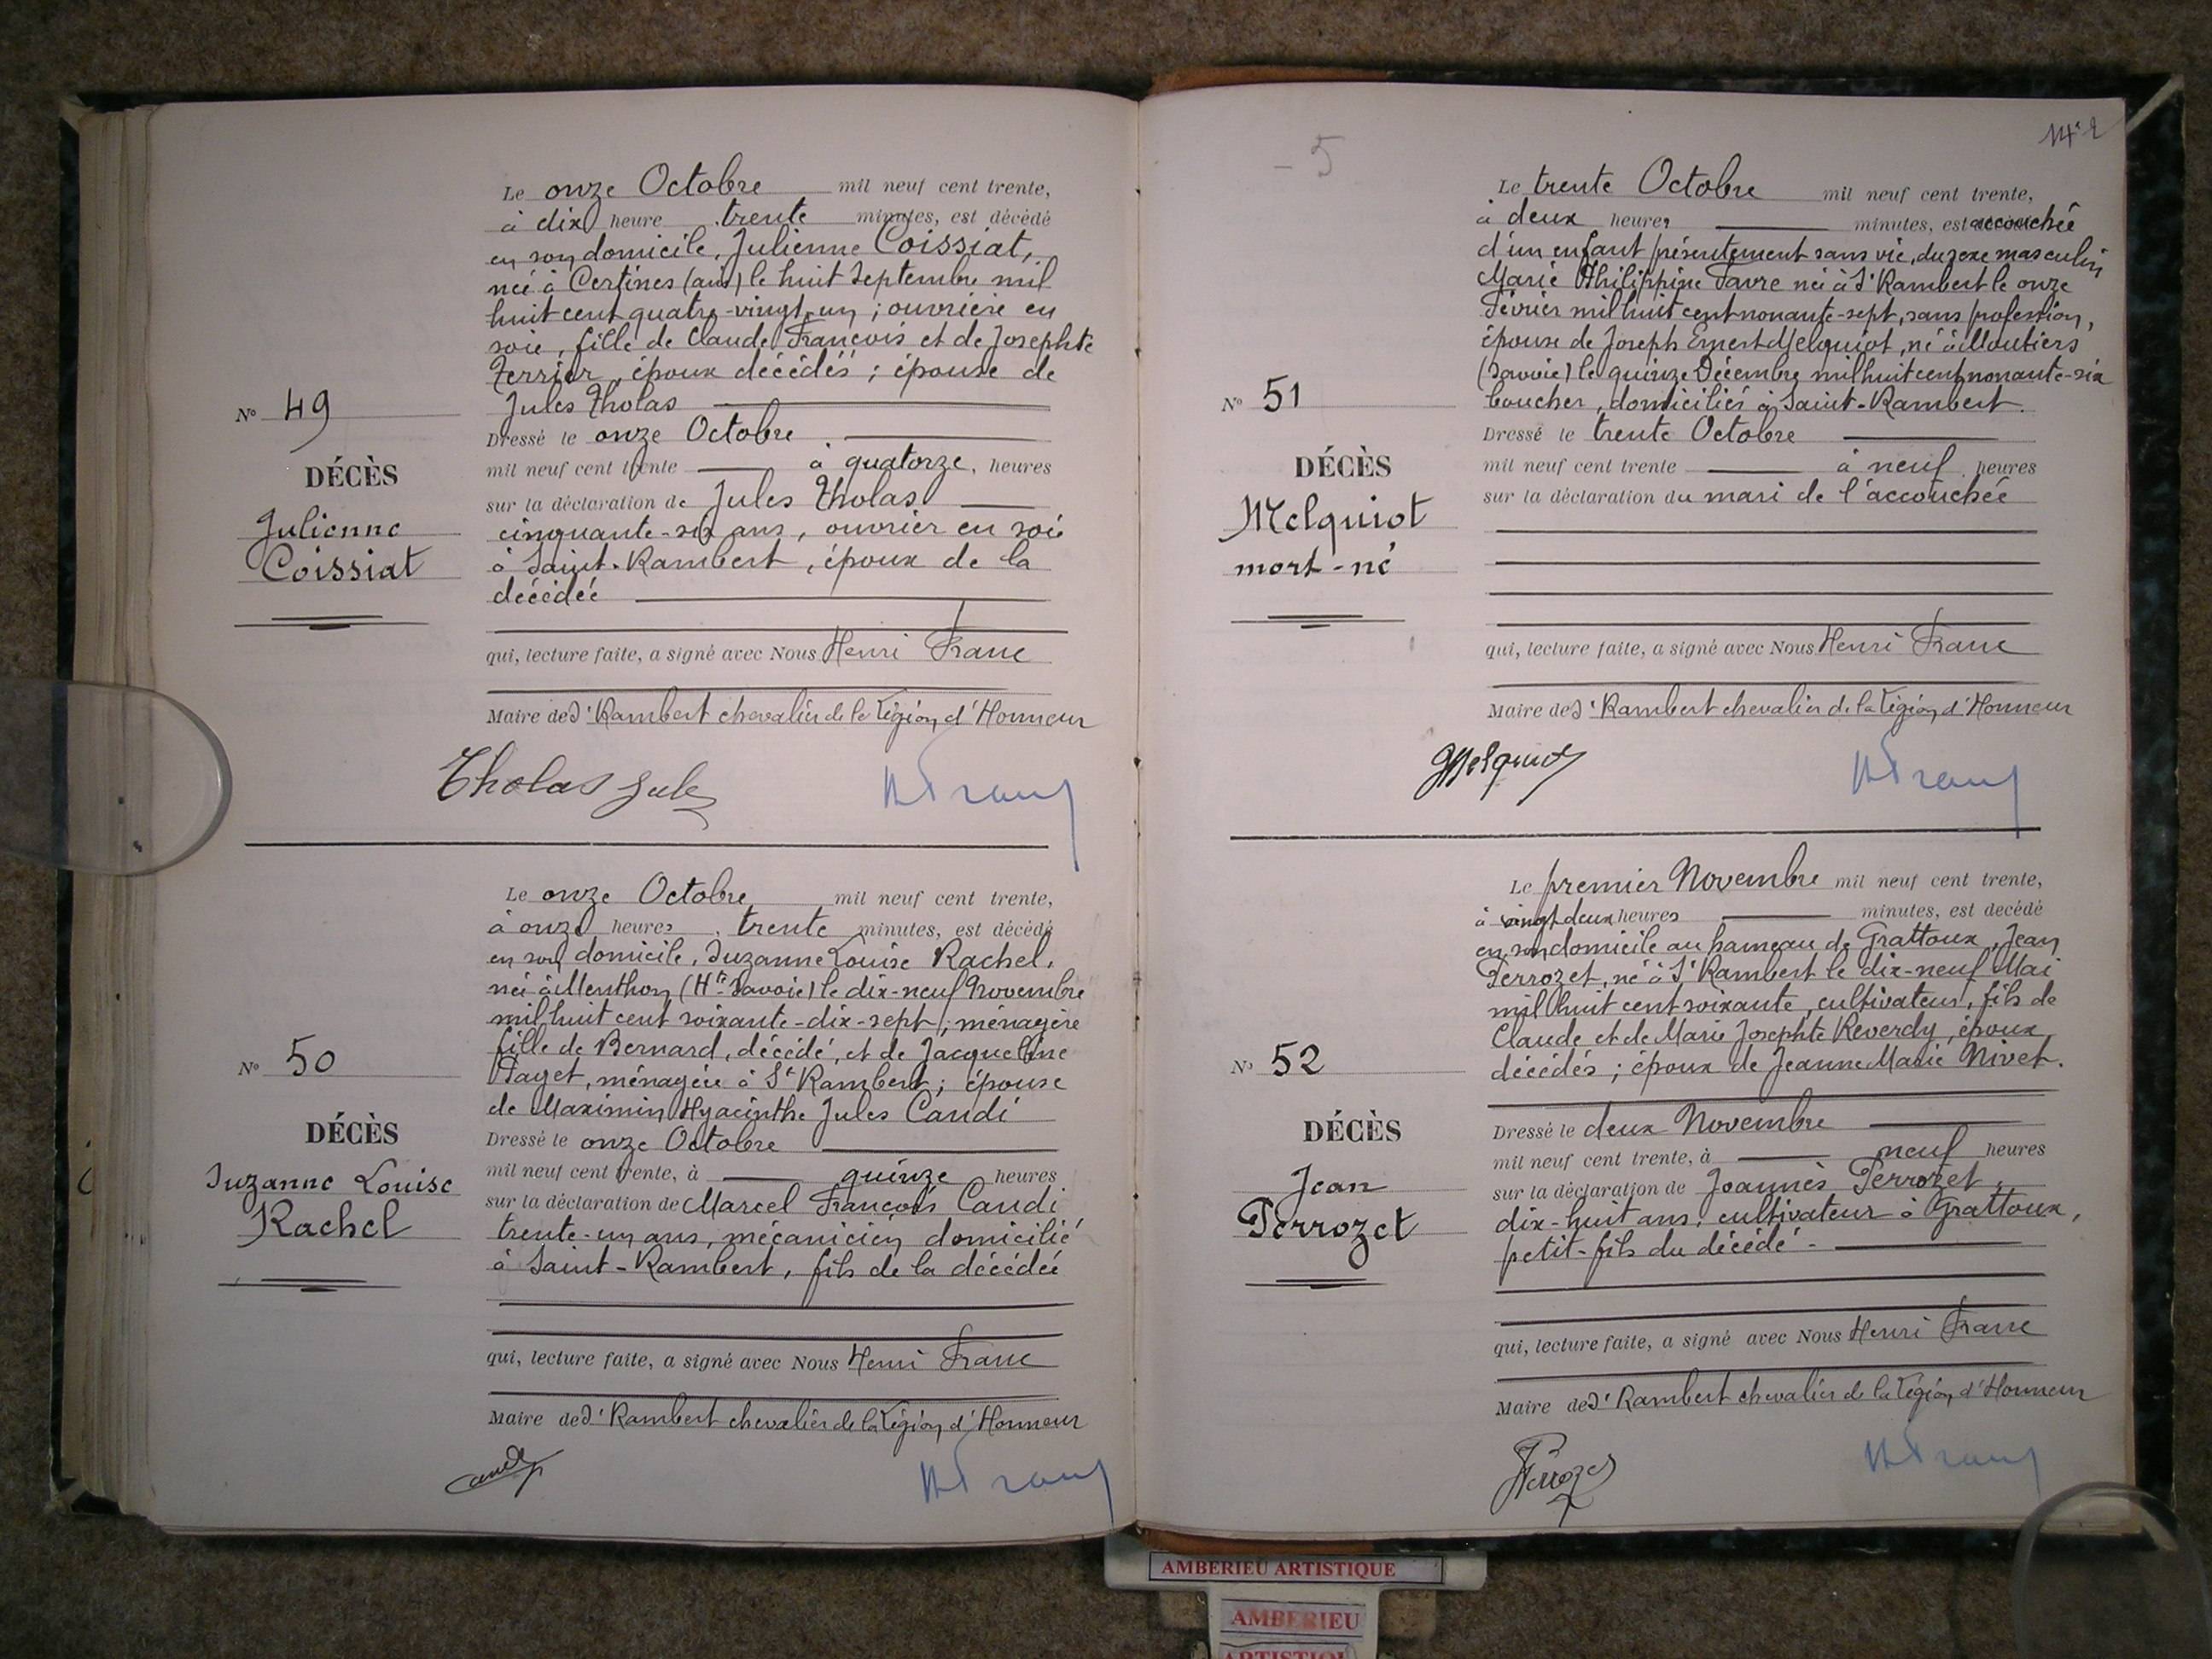 Le onze Octobre mil neuf cent trente,
à dix heure trente minutes, est décédé
en son domicile, Julienne Coissiat,
née à Certines (ain) le huit Septembre mil
huit cent quatre-vingt-un ; ouvrière en
soie, fille de Claude François et de Josephte
Ferrier, époux décédés ; épouse de
Jules Tholas
Nº 49
DÉCÈS
Julienne
Coissiat
Dressé le onze Octobre
mil neuf cent trente à quatorze, heures
sur la déclaration de Jules Tholas
cinquante-six ans, ouvrier en soie
à Saint-Rambert, époux de la
décédée
qui, lecture faite, a signé avec Nous Henri Franc
Maire de St Rambert chevalier de la Légion d'Honneur
Tholas Jules
HFranc
Le onze Octobre mil neuf cent trente,
à onze heures trente minutes, est décédé
en son domicile, Suzanne Louise Rachel,
née à Menthon (Hte Savoie) le dix-neuf Novembre
mil huit cent soixante-dix-sept ; ménagère
fille de Bernard, décédé, et de Jacqueline
Paget, ménagère à St Rambert ; épouse
de Maximin Hyacinthe Jules Candi
Nº 50
DÉCÈS
Suzanne Louise
Rachel
Dressé le onze Octobre
mil neuf cent trente, à quinze heures
sur la déclaration de Marcel François Candi
trente-un ans, mécanicien domicilié
à Saint-Rambert, fils de la décédée
qui, lecture faite, a signé avec Nous Henri Franc
Maire de St Rambert chevalier de la Légion d'Honneur
Candi
HFranc
- 5
Le trente Octobre mil neuf cent trente,
à deux heures minutes, est accouchée
d'un enfant présentement sans vie, du sexe masculin
Marie Philippine Favre née à St Rambert le onze
Février mil huit cent nonante-sept, sans profession,
épouse de Joseph Ernest Melquiot, né à Moutiers
(Savoie) le quinze Décembre mil huit cent nonante-six
boucher, domiciliés à Saint-Rambert.
Nº 51
DÉCÈS
Melquiot
mort-né
Dressé le trente Octobre
mil neuf cent trente à neuf heures
sur la déclaration du mari de l'accouchée
qui, lecture faite, a signé avec Nous Henri Franc
Maire de St Rambert chevalier de la Légion d'Honneur
JMelquiot
HFranc
Le premier Novembre mil neuf cent trente,
à vingt deux heures minutes, est decédé
en son domicile au hameau de Grattoux, Jean
Perrozet, né à St Rambert le dix-neuf Mai
mil huit cent soixante, cultivateur, fils de
Claude et de Marie Josephte Reverdy, époux
décédés ; époux de Jeanne Marie Nivet.
Nº 52
DÉCÈS
Jean
Perrozet
Dressé le deux Novembre
mil neuf cent trente, à neuf heures
sur la déclaration de Joannès Perrozet,
dix-huit ans, cultivateur à Grattoux,
petit-fils du décédé.
qui, lecture faite, a signé avec Nous Henri Franc
Maire de St Rambert chevalier de la Légion d'Honneur
JPerrozet
HFranc
AMBERIEU ARTISTIQUE
AMBERIEU
ARTISTIQUE